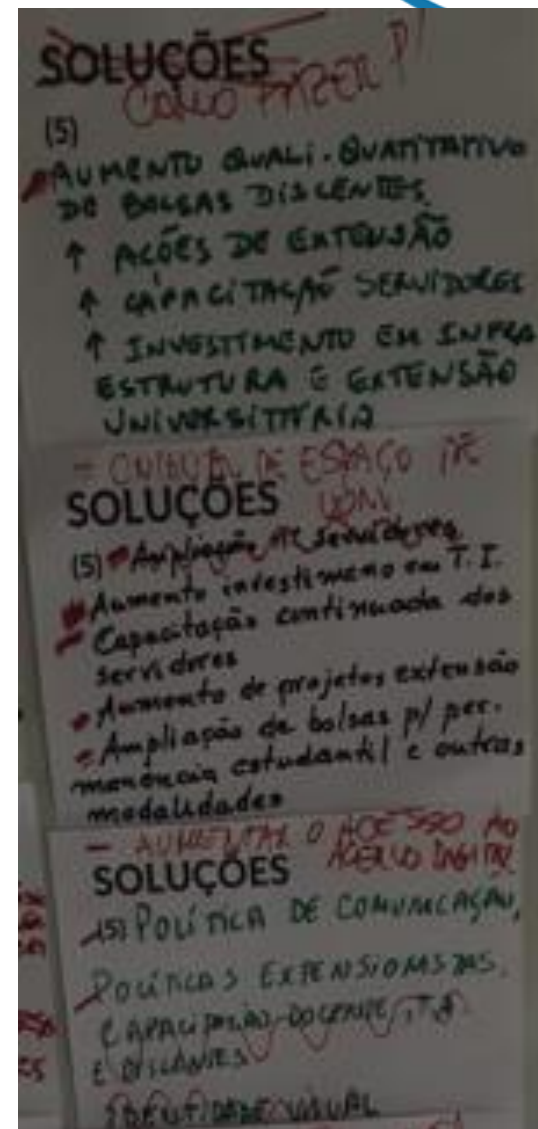 SOLUÇÕES
COMO FAZER P/
(5)
AUMENTO QUALI-QUATITATIVO
DE BOLSAS DISCENTES
↑ AÇÕES DE EXTENSÃO
↑ CAPACITAÇÃO SERVIDORES
↑ INVESTIMENTO EM INFRA
ESTRUTURA E EXTENSÃO
UNIVERSITÁRIA
DE ESPAÇO DE
SOLUÇÕES
(5) Ampliação de servidores
Aumento investimeno em T.I.
Capacitação continuada dos
servidores
Aumento de projetos extensão
Ampliação de bolsas p/ per.
manência estudantil e outras
modalidades
- AUMENTAR O ACESSO AO
ACERVO DIGITAL
SOLUÇÕES
(5) POLÍTICA DE COMUNICAÇÃO,
POLÍTICAS EXTENSIONISTAS.
CAPACITAÇÃO DOCENTE, TA
E DISCENTES
IDENTIDADE VISUAL